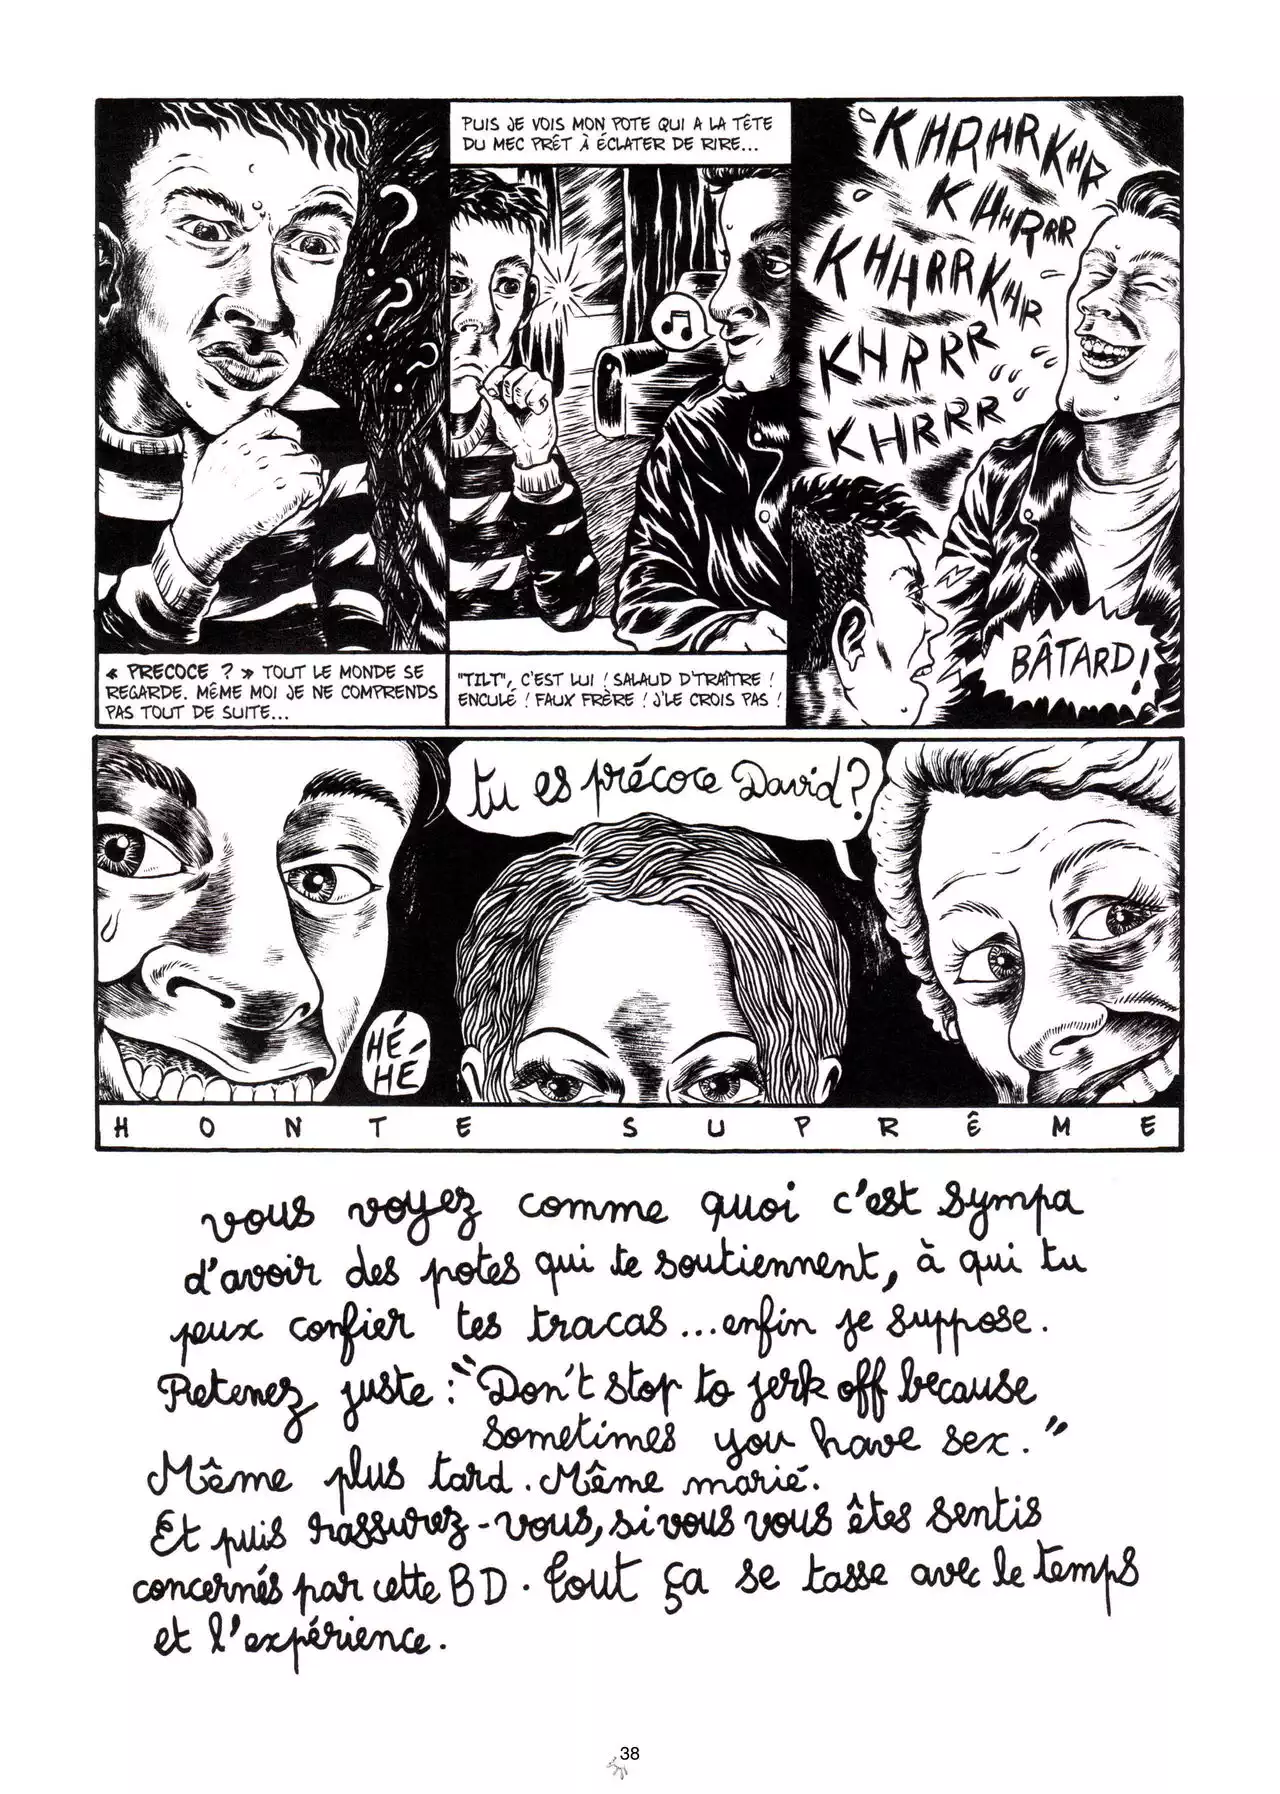 « PRECOCE ? » TOUT LE MONDE SE
REGARDE. MÊME MOI JE NE COMPRENDS
PAS TOUT DE SUITE...
PUIS JE VOIS MON POTE QUI A LA TÊTE
DU MEC PRÊT À ÉCLATER DE RIRE...
"TILT", C'EST LUI ! SALAUD D'TRAÎTRE !
ENCULÉ ! FAUX FRÈRE ! J'LE CROIS PAS !
KHRHRKHR
KHHRRR
KHHRRKHR
KHRRR
KHRRR
BÂTARD !
HÉ
HÉ
tu es précoce David ?
HONTE SUPRÊME
vous voyez comme quoi c'est sympa
d'avoir des potes qui te soutiennent, à qui tu
peux confier tes tracas... enfin je suppose.
Retenez juste : "Don't stop to jerk off because
sometimes you have sex."
Même plus tard. Même marié.
Et puis rassurez-vous, si vous vous êtes sentis
concernés par cette BD. Tout ça se tasse avec le temps
et l'expérience.
38